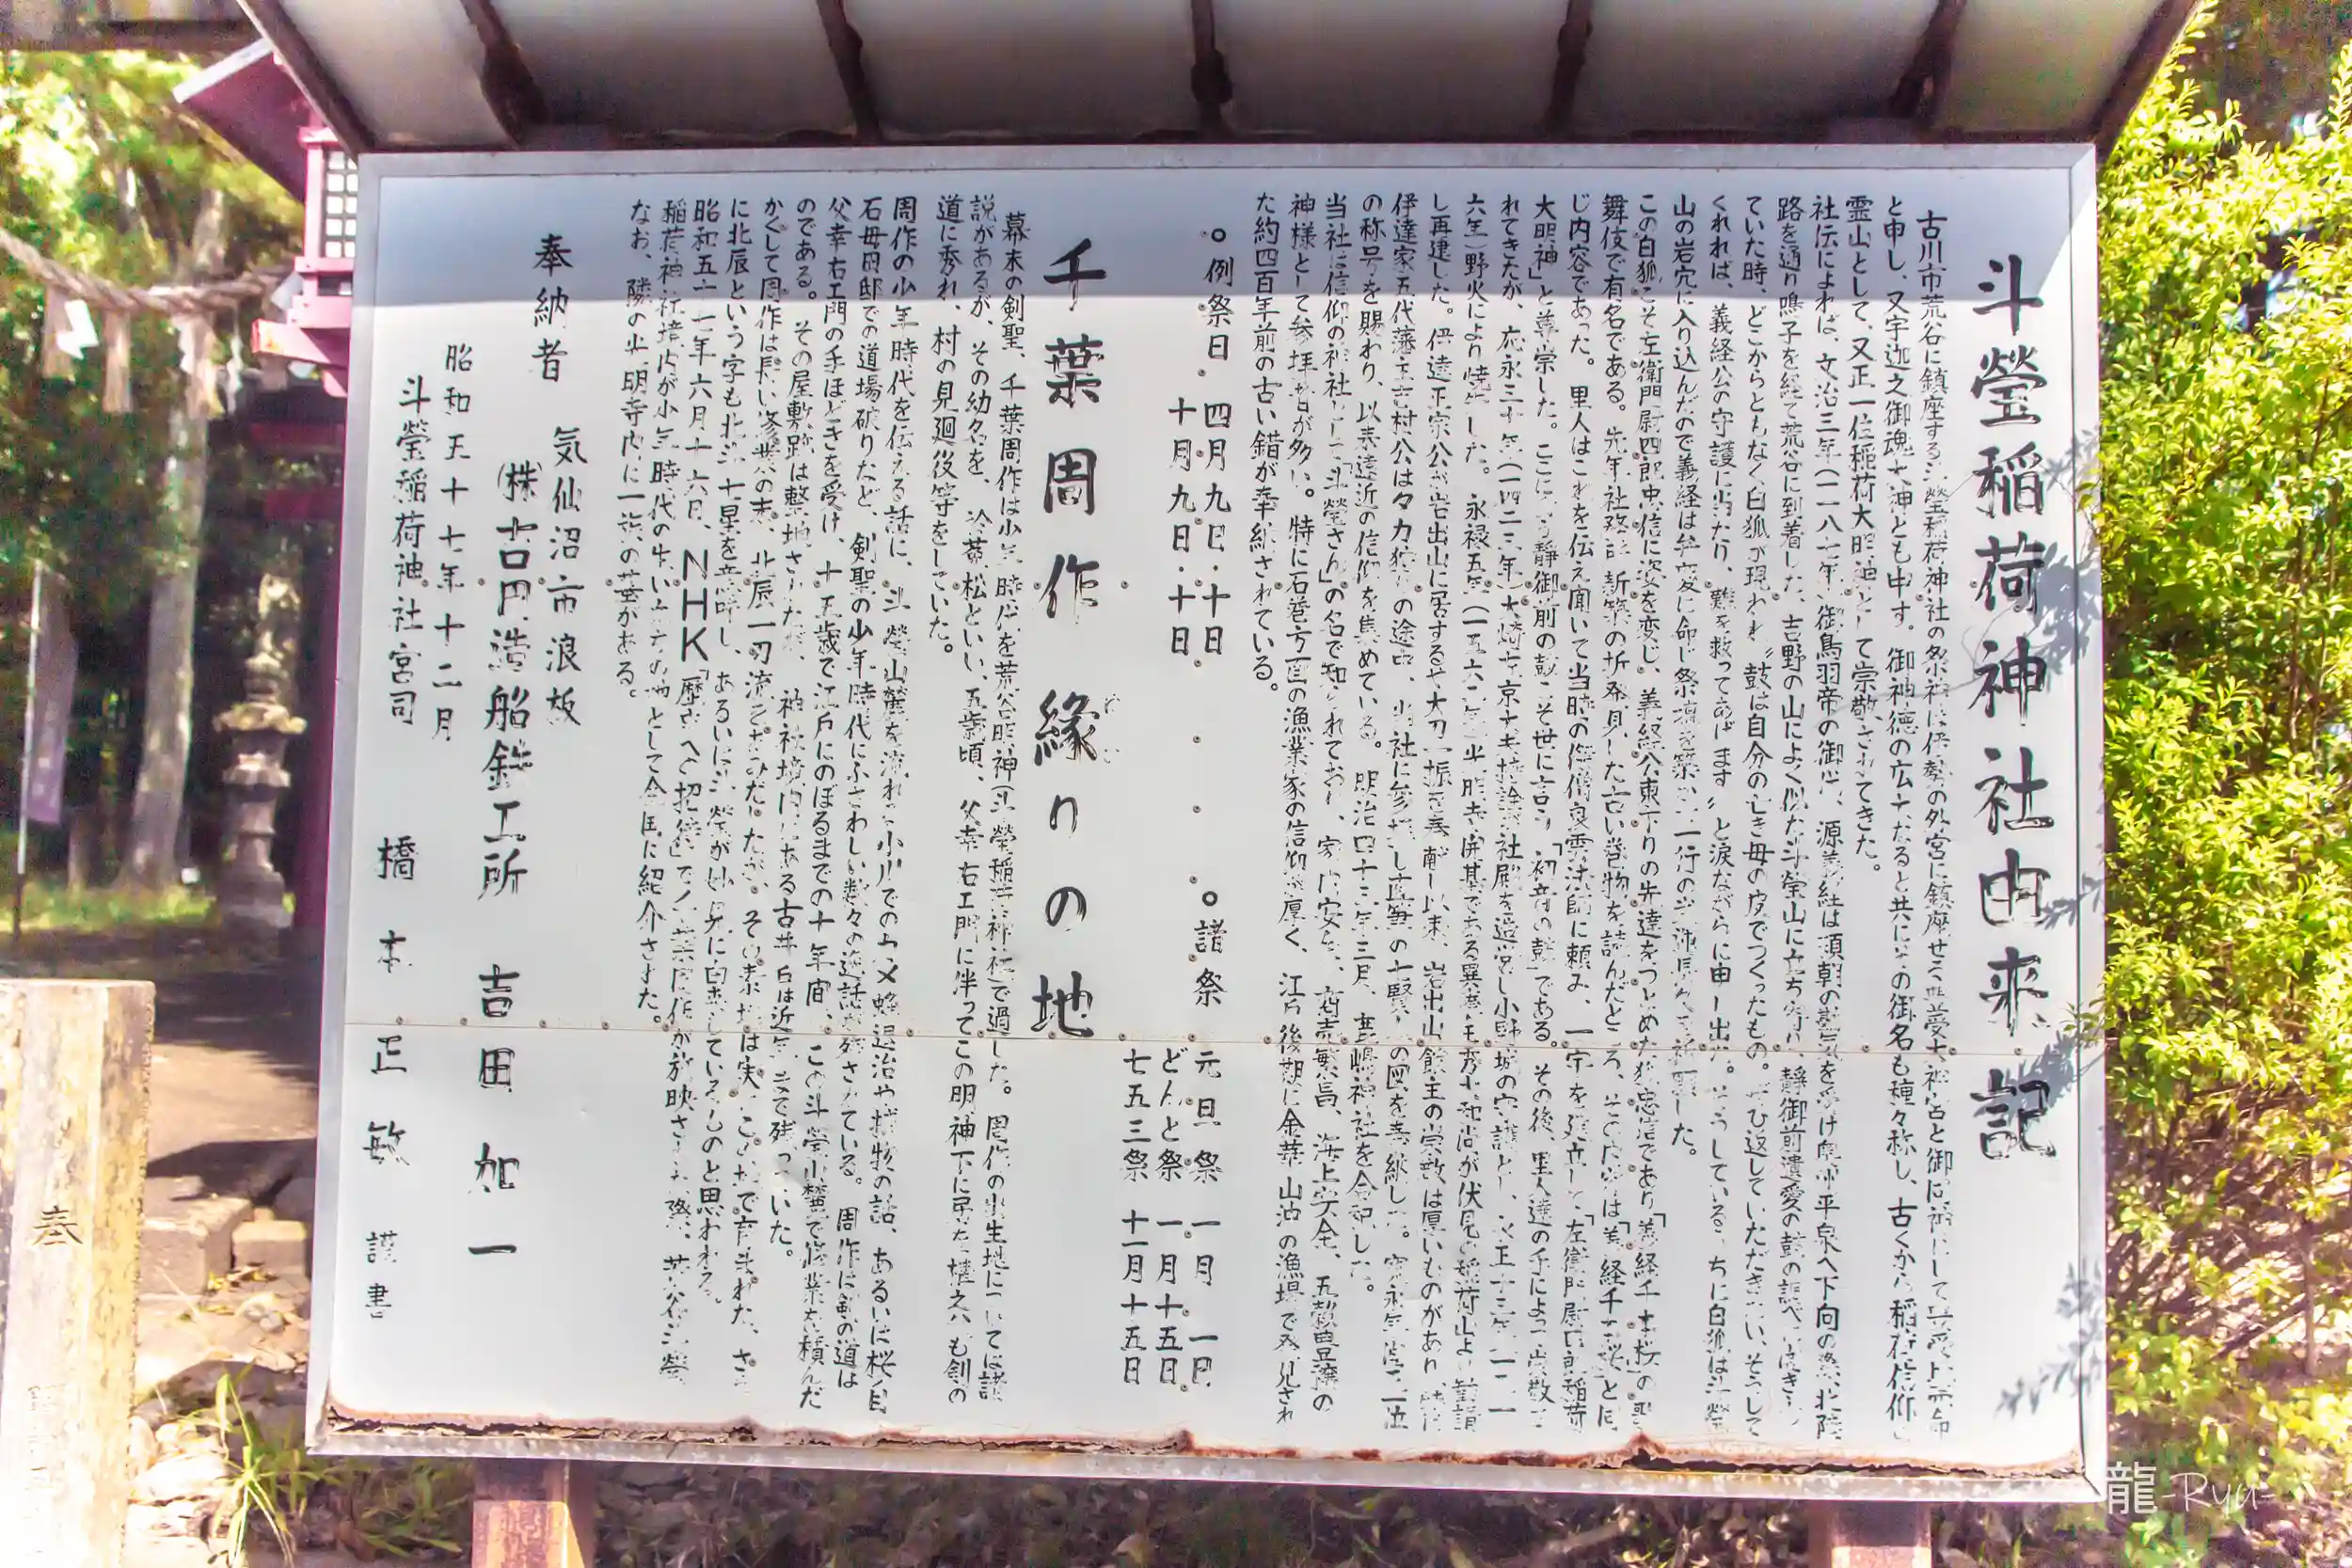 斗螢稲荷神社由来記
古川市荒谷に鎮座する斗螢稲荷神社の祭神は伊勢の外宮に鎮座せる豊受大神宮と御同神にして豊受比売命
と申し、又宇迦之御魂大神とも申す。御神徳の広大なると共にその御名も種々称し、古くから稲荷信仰の
霊山として、又正一位稲荷大明神として崇敬されてきた。
社伝によれば、文治三年(一一八七年)御鳥羽帝の御世、源義経は頼朝の勘気を受け奥州平泉へ下向の際、北陸
路を通り鳴子を経て荒谷に到着した。吉野の山によく似た斗螢山に立ち寄り、静御前遺愛の鼓の調べ
ていた時、どこからともなく白狐が現われ〝鼓は自分の亡き母の皮でつくったもの。ぜひ返していただきたい、そうして
くれれば、義経公の守護に当たり、難を救ってあげます〟と涙ながらに申し出た。そうしているうちに白狐は斗螢
山の岩穴に入り込んだので義経は弁慶に命じ祭壇を築き一行の
この白狐こそ左衛門尉四郎忠信に姿を変じ、義経公東下りの先達をつとめた狐忠信であり「義経千本桜」の歌
舞伎で有名である。先年社務所新築の折発見した古い巻物を読んだところ、その内容は「義経千本桜」と同
じ内容であった。里人はこれを伝え聞いて当時の修僧良雲法師に頼み、一宇を建立して「左衛門尉四郎稲荷
大明神」と尊崇した。ここに静御前の鼓こそ世に言う「初音の鼓」である。その後、里人達の手によって崇敬さ
れてきたが、応永三十年(一四二三年)大崎左京大夫持詮社殿を造営し小野城の守護とし、永正十三年
六年)野火により焼失した。永禄五年(一五六二年)光明寺開基である異庵正秀大和尚が伏見の稲荷山より勧請
し再建した。伊達正宗公が岩出山に居するや大刀一振を奉献し以来、岩出山館主の崇敬は厚いものがあり、
伊達家五代藩主吉村公は夕力狩りの途中、当社に参拝し直筆の十賢人の図を奉納した。
の称号を賜わり、以来遠近の信仰を集めている。明治四十三年三月、鹿嶋神社を合祀した。
当社は信仰の神社として「斗螢さん」の名で知られており、家内安全、商売繁昌、海上安全、五穀豊穣の
神様として参拝者が多い。特に石巻方面の漁業家の信仰が厚く、江戸後期に金華山沖の漁場で発見され
た約四百年前の古い錨が奉納されている。
○例祭日 四月九日・十日
十月九日・十日
○諸祭 元旦祭 一月一日
どんと祭 一月十五日
七五三祭 十一月十五日
千葉周作縁りの地
幕末の剣聖、千葉周作は少年時代を荒谷明神(斗螢稲荷神社)で過した。周作の出生地については諸
説があるが、その幼名を、於菟松といい、五歳頃、父幸右ェ門に伴ってこの明神下に居た。も剣の
道に秀れ、村の見廻役等をしていた。
周作の少年時代を伝える話に、斗螢山麓を流れる小川での大蛇退治や捕物の話、あるいは桜目
石母田邸での道場破りなど、剣聖の少年時代にふさわしい数々の逸話が残されている。周作は剣の道は
父幸右ェ門の手ほどきを受け、十五歳で江戸にのぼるまでの十年間、この斗螢山麓で修業を積んだ
のである。その屋敷跡は整地されたが、神社境内にある古井戸は近年まで残っていた。
かくして周作は長い修業の末、北辰一刀流をあみだしたが、その素地は実にこの地で育まれた。さら
に北辰という字も北斗七星を意味し、あるいは斗螢が妙見に由来しているものと思われる。
昭和五十一年六月十六日、NHK「歴史への招待」で千葉周作が放映された際、荒谷斗螢
稲荷神社境内が少年時代の生い立ちの地として全国に紹介された。
なお、隣の光明寺内に一族の墓がある。
奉納者 気仙沼市浪板
(株)吉田造船鉄工所 吉田加一
昭和五十七年十二月
斗螢稲荷神社宮司 橋本正敏 謹書
奉
龍-Ryu-